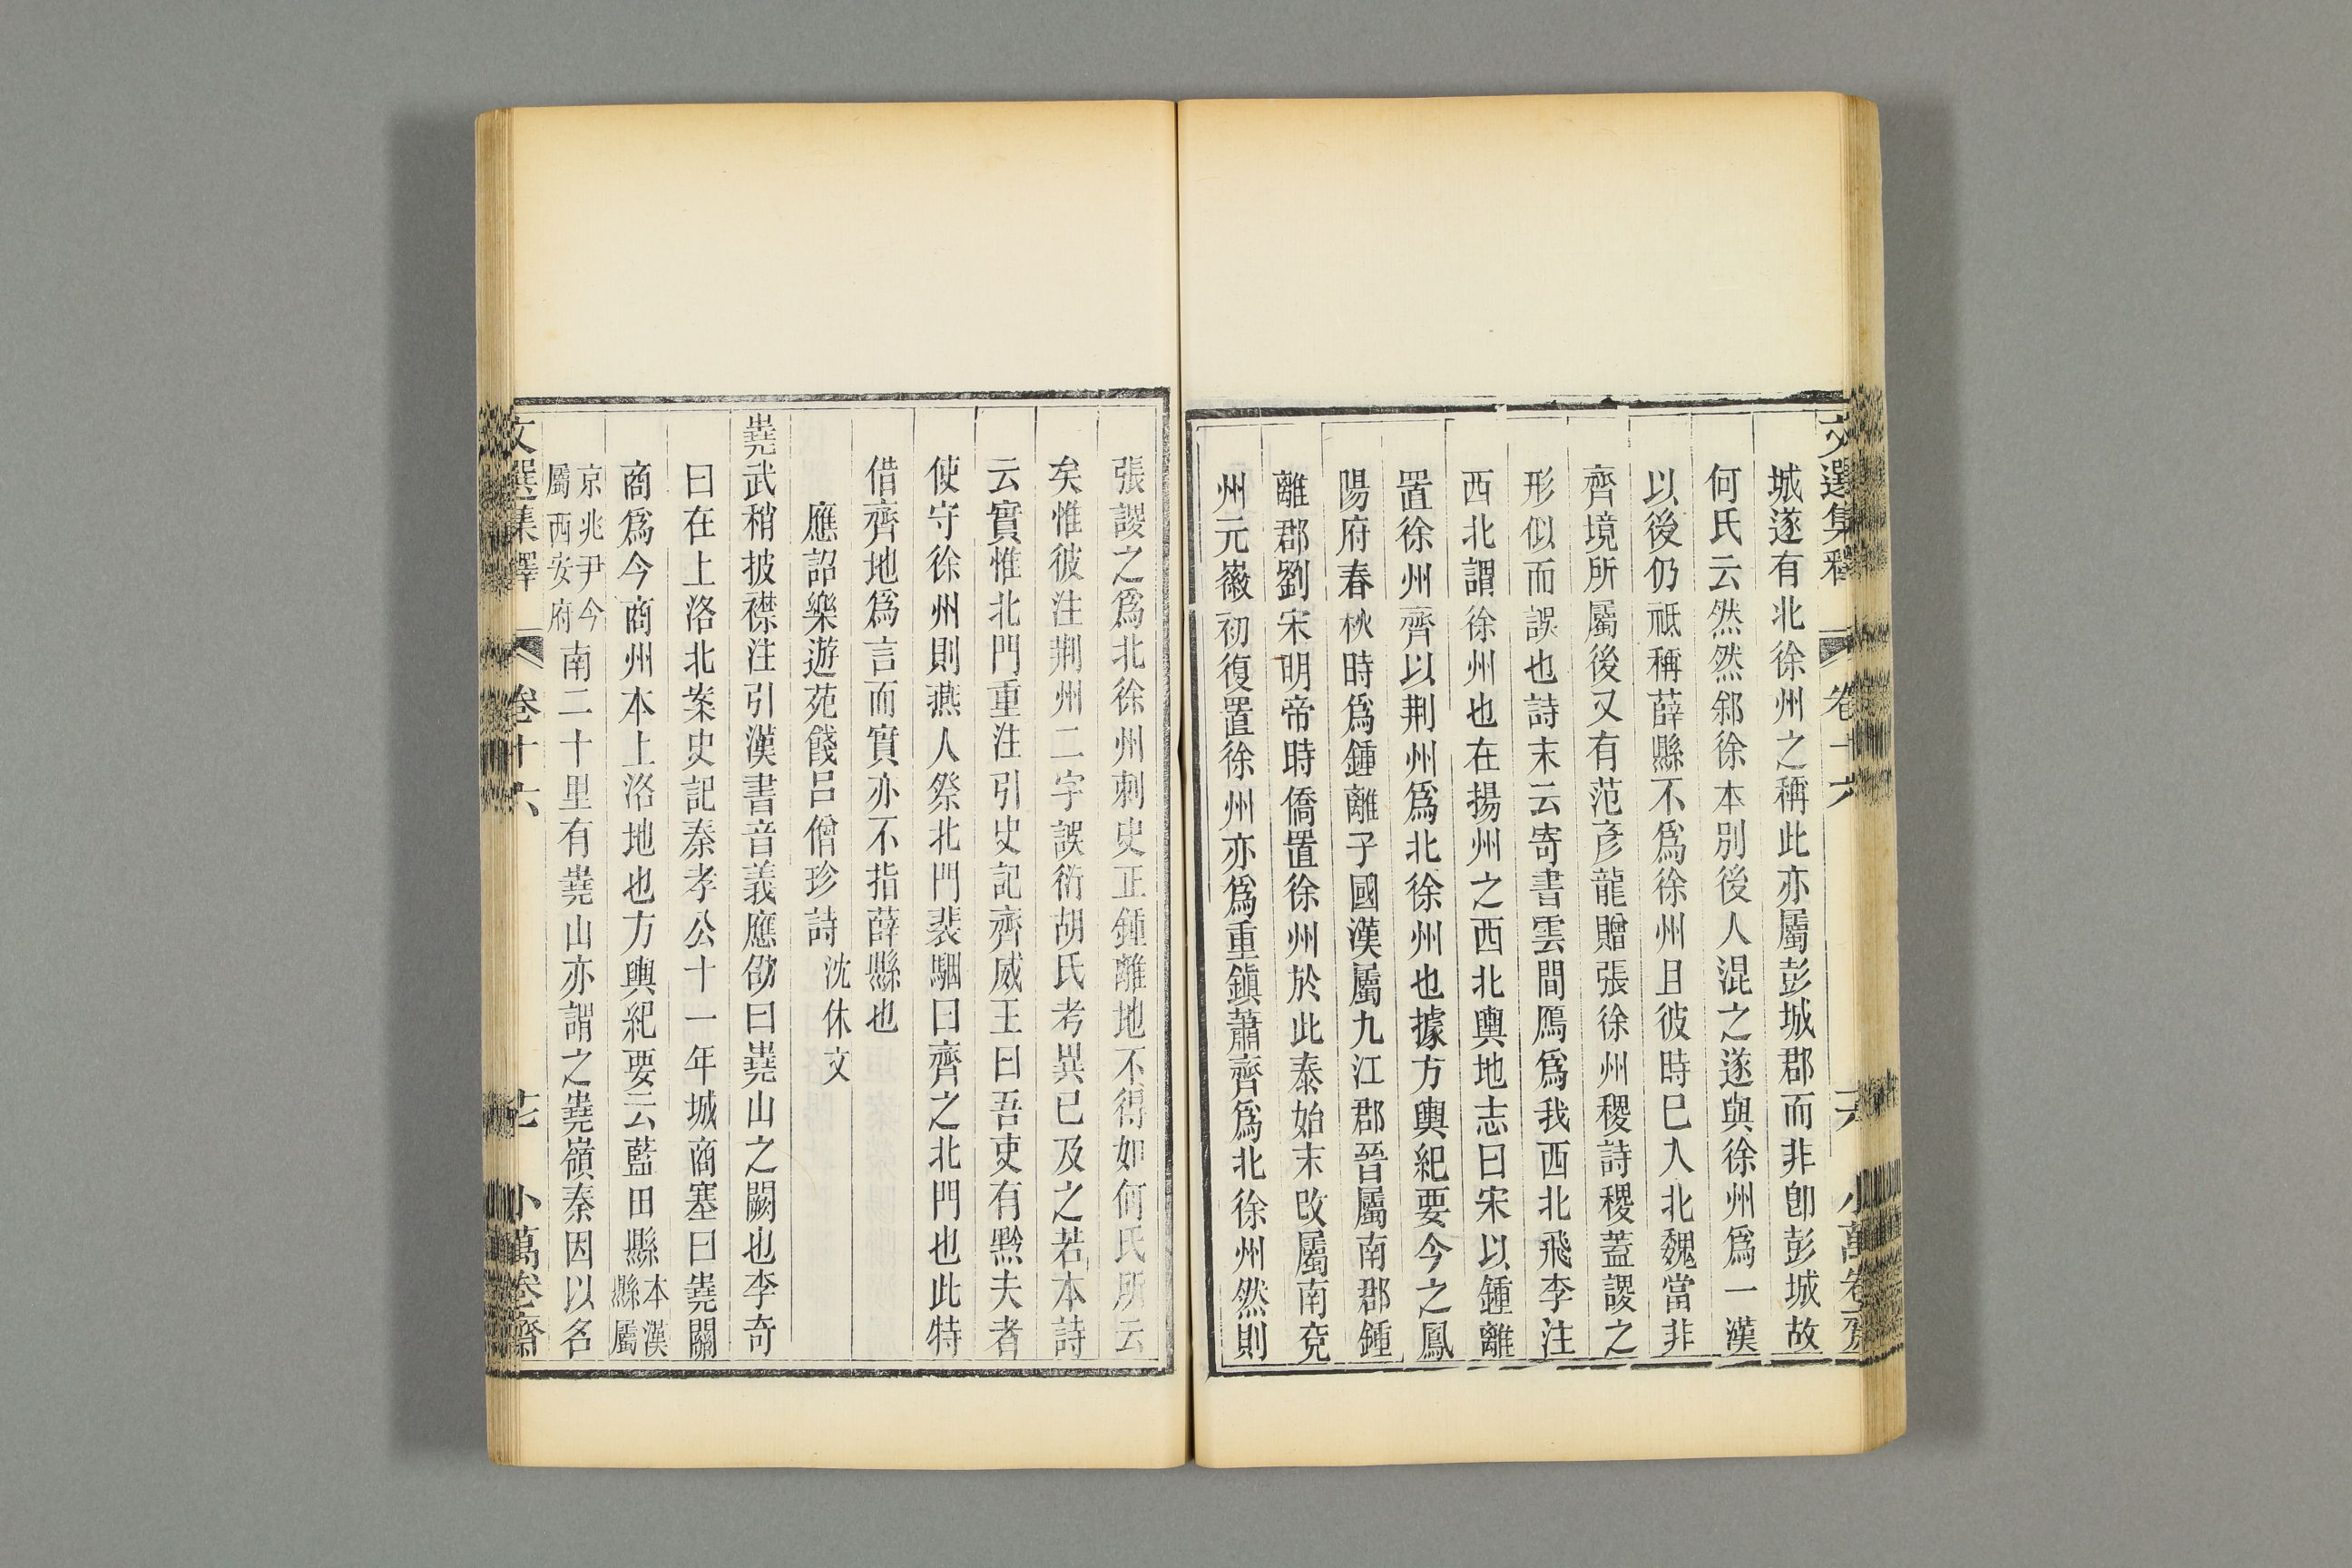 文選集釋 卷十六 小萬卷齋
城遂有北徐州之稱此亦屬彭城郡而非卽彭城故
何氏云然然郐徐本別後人混之遂與徐州爲一漢
以後仍祗稱薛縣不爲徐州且彼時巳入北魏當非
齊境所屬後又有范彥龍贈張徐州稷詩稷蓋謖之
形似而誤也詩末云寄書雲間鴈爲我西北飛李注
西北謂徐州也在揚州之西北輿地志曰宋以鍾離
置徐州齊以荆州爲北徐州也據方輿紀要今之鳳
陽府春秋時爲鍾離子國漢屬九江郡晉屬南郡鍾
離郡劉宋明帝時僑置徐州於此泰始末改屬南兗
州元徽初復置徐州亦爲重鎭蕭齊爲北徐州然則
張謖之爲北徐州刺史正鍾離地不得如何氏所云
矣惟彼注荆州二字誤衍胡氏考異已及之若本詩
云實惟北門重注引史記齊威王曰吾吏有黔夫者
使守徐州則燕人祭北門裴駰曰齊之北門也此特
借齊地爲言而實亦不指薛縣也
應詔樂遊苑餞呂僧珍詩 沈休文
嶤武稍披襟注引漢書音義應劭曰嶤山之關也李奇
曰在上洛北案史記秦孝公十一年城商塞曰嶤關
商爲今商州本上洛地也方輿紀要云藍田縣本漢縣屬
京兆尹今屬西安府南二十里有嶤山亦謂之嶤嶺秦因以名
文選集釋 卷十六 小萬卷齋